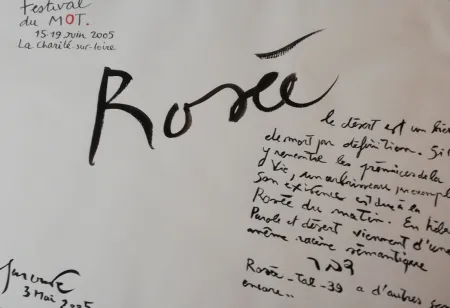 Festival
du MOT.
15-19 Juin 2005
La Charité-sur-Loire
Rosée
le désert est un
de mort par définition. Si l
y rencontre les prémices de la
Vie, un arbrisseau par
son existence est due à la
Rosée du matin. En
Parole et désert viennent d'une
même racine sémantique
דבר
Rosée - Tal - 39 a d'autres
encore..
3 Mai 2005